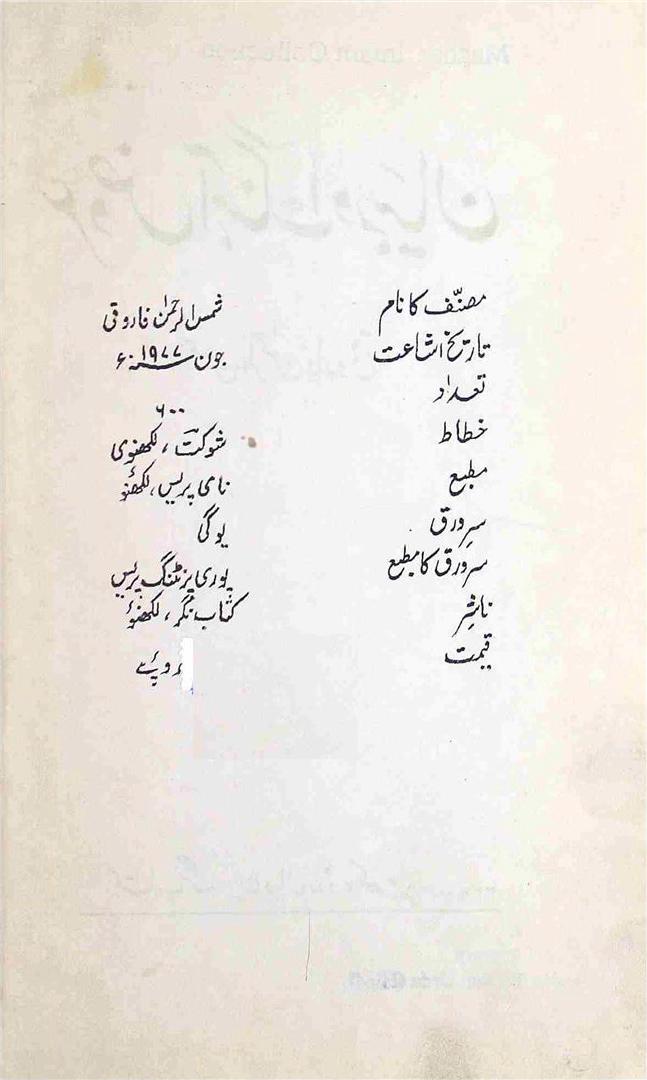 مصنّف کا نام شمس الرحمٰن فاروقی
تاریخ اشاعت جون ۱۹۷۷ء
تعداد ۶۰۰
خطاط شوکت، لکھنوی
مطبع نامی پریس، لکھنؤ
سرِورق یوگی
سرورق کا مطبع پوری پرنٹنگ پریس
ناشِر کتاب نگر، لکھنؤ
قیمت روپئے